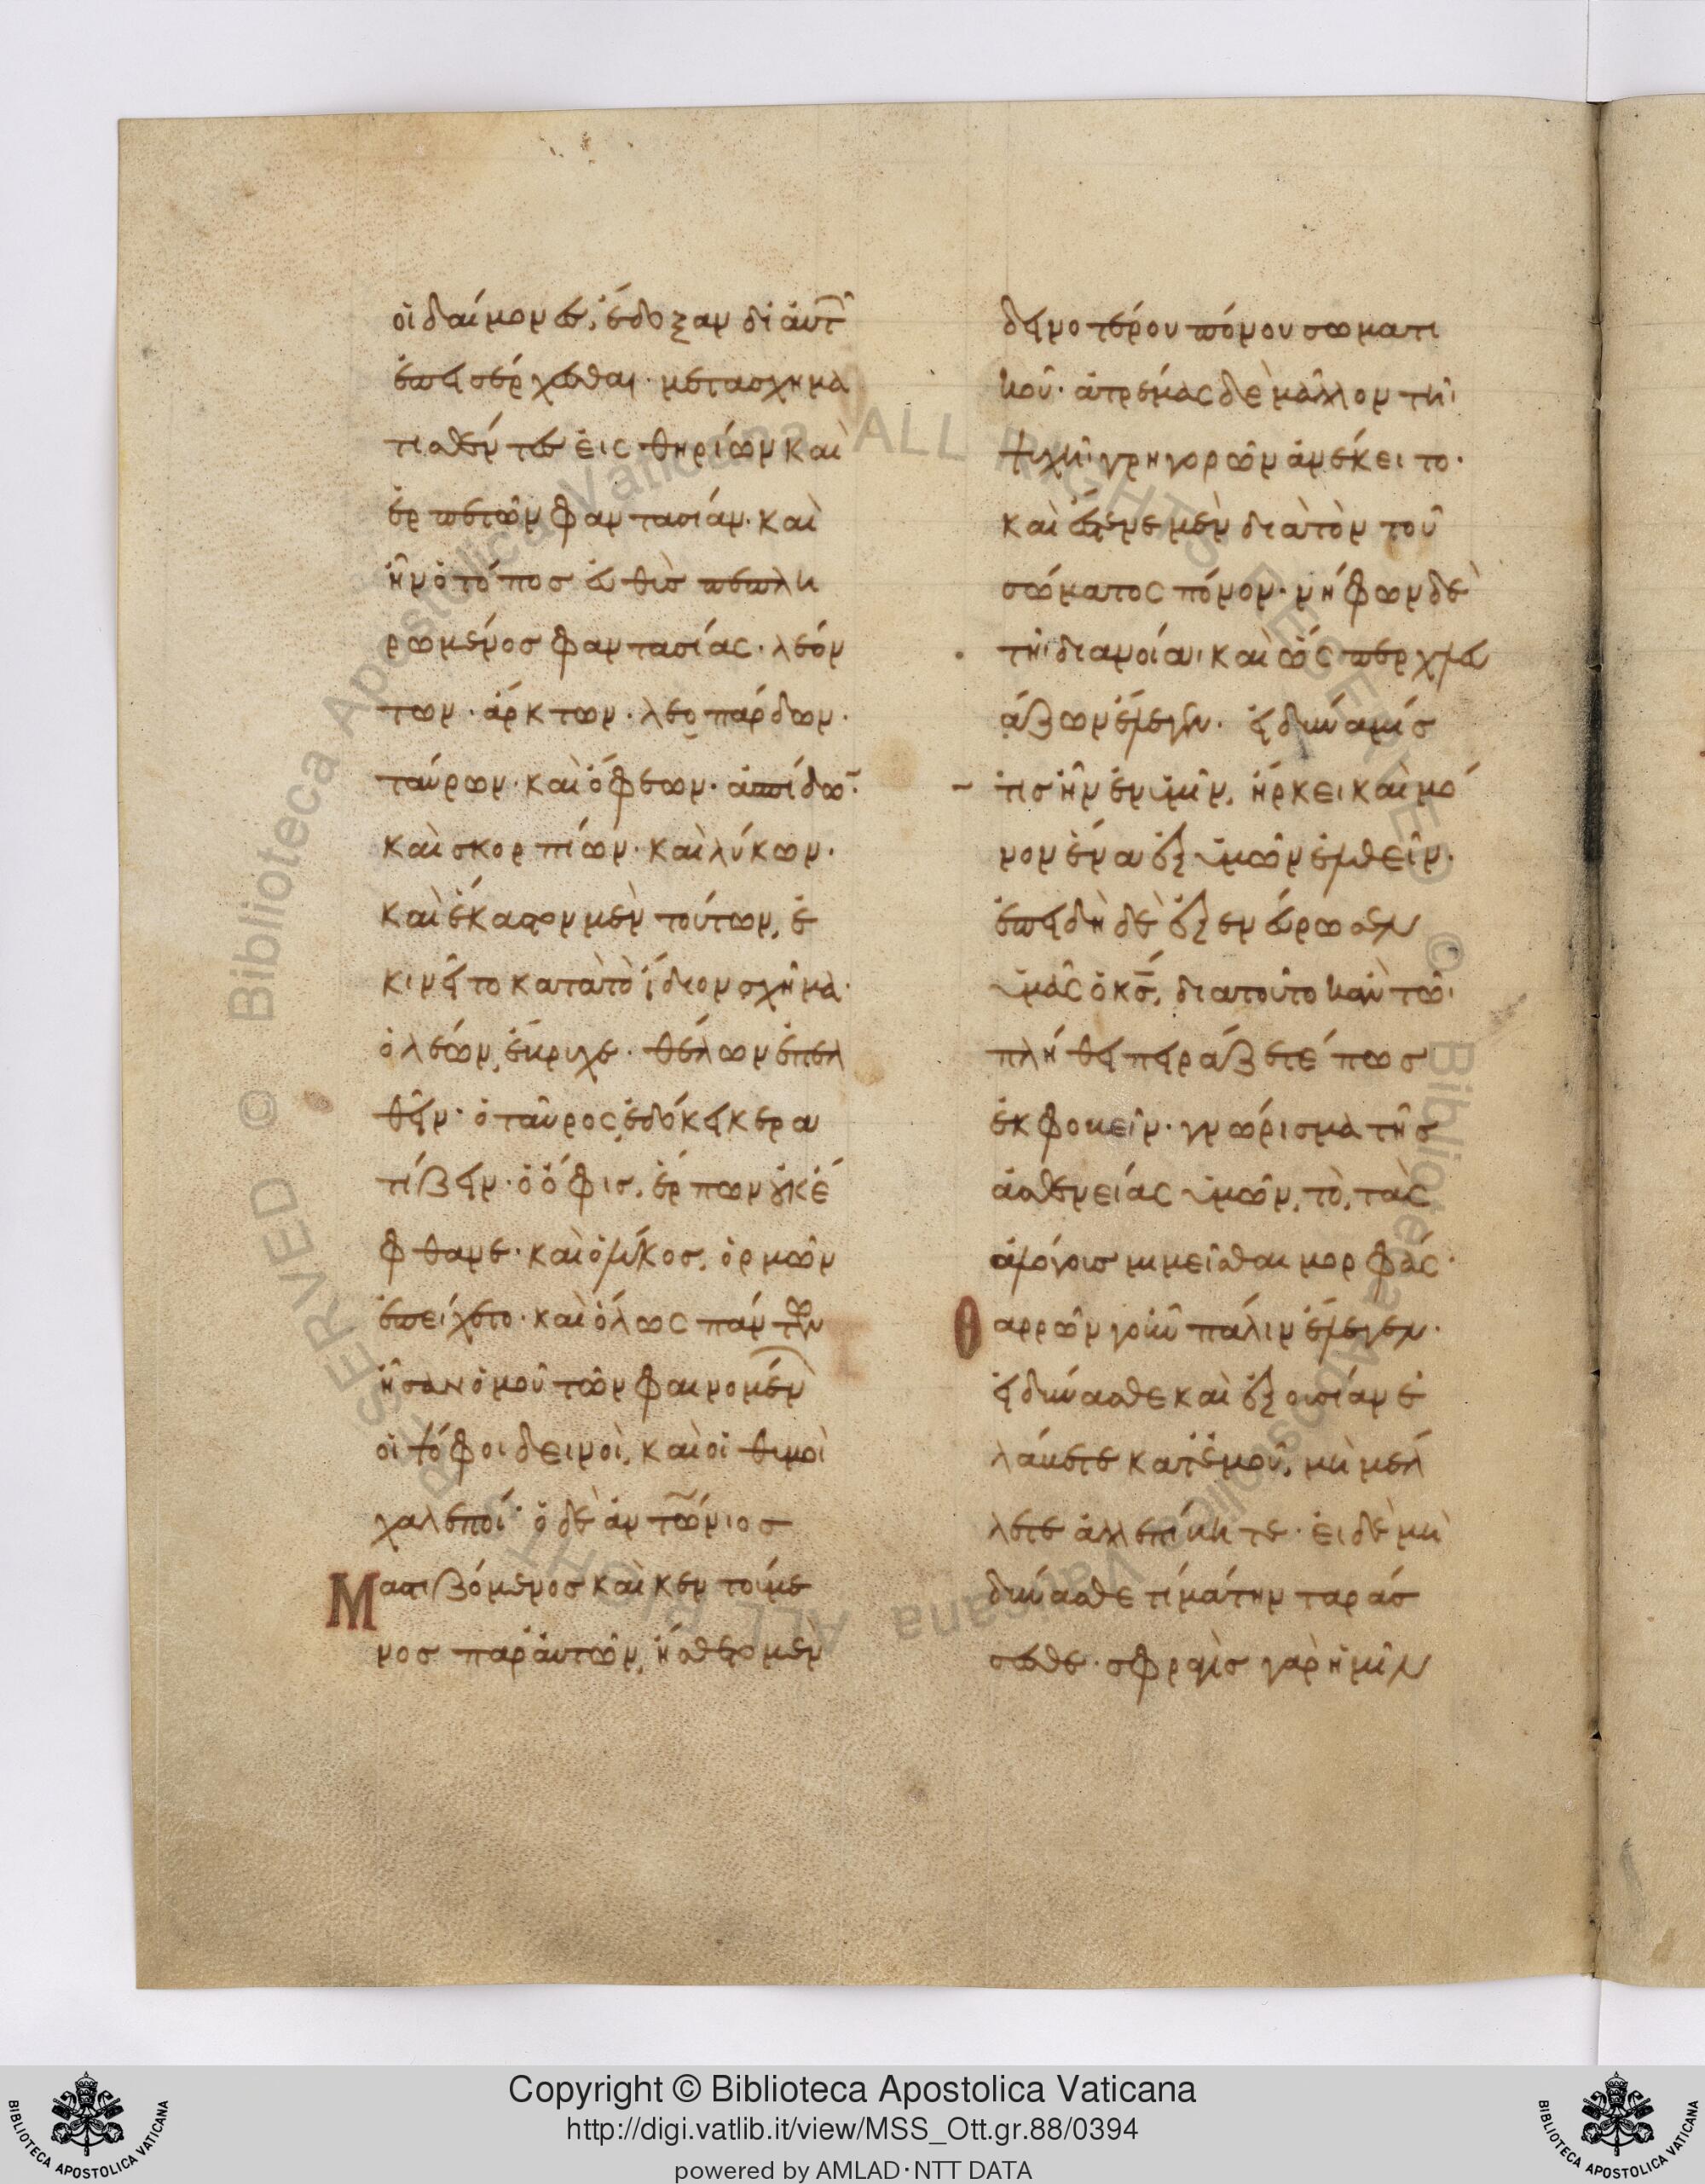 οἱ δαίμονες, ἔδοξαν δι᾽ αὐτῆ
ἐπεισέρχεσθαι· μετασχημα
τισθέντες εἰς θηρίων καὶ
ἑρπετῶν φαντασίαν· καὶ
ἦν ὁ τόπος εὐθὺς πεπλη
ρωμένος φαντασίας· λεόν
των· ἄρκτων· λεοπάρδων·
ταύρων· καὶ ὄφεων· ἀσπίδω̅·
καὶ σκορπίων· καὶ λύκων·
καὶ ἕκαστον μὲν τούτων, ἐ
κινεῖτο κατὰ τὸ ἴδιον σχῆμα·
ὁ λέων, ἔβρυχε· θέλων ἐπελ
θεῖν· ὁ ταῦρος, ἐδόκει κερα
τίζειν· ὁ ὄφις, ἕρπων οὐκ ἔ
φθανε· καὶ ὁ λύκος, ὁρμῶν
ἐπείχετο· καὶ ὅλως πάντων
ἦσαν ὁμοῦ τῶν φαινομέν
οἱ ψόφοι δεινοὶ, καὶ οἱ θυμοὶ
χαλεποί· ὁ δὲ ἀντώνιος
Μαστιζόμενος καὶ κεντούμε
νος παρ᾽ αὐτῶν, ἤσθετο μὲν
δεινοτέρου πόνου σωματι
κοῦ· ἀτρεμὰς δὲ μᾶλλον τῆι
ψυχῆι γρηγορῶν ἀνέκειτο·
καὶ ἔστενε μὲν διὰ τὸν τοῦ
σώματος πόνον· νήφων δὲ
τῆι διανοίαι· καὶ ὥσπερ χλευ
άζων ἔλεγεν· εἰ δύναμίς
τις ἦν ἐν ὑμῖν, ἤρκει καὶ μό
νον ἕνα ἐξ ὑμῶν ἐλθεῖν·
ἐπειδὴ δὲ ἐξενεύρωσεν
ὑμᾶς ὁ κς̅, διατοῦτο κἂν τῶι
πλήθει πειράζετέ πως
ἐκφοβεῖν· γνώρισμα τῆς
ἀσθενείας ὑμῶν, τὸ, τὰς
ἀλόγοις μιμεῖσθαι μορφάς·
Θαρρῶν γοῦν πάλιν ἔλεγεν·
εἰ δύνασθε καὶ ἐξουσίαν ἐ
λάβετε κατ᾽ ἐμοῦ, μὴ μέλ
λετε ἀλλ᾽ ἐπίβητε· εἰ δὲ μὴ
δύνασθε τί μάτην ταράσ
σεσθε· σφραγὶς γὰρ ἡμῖν